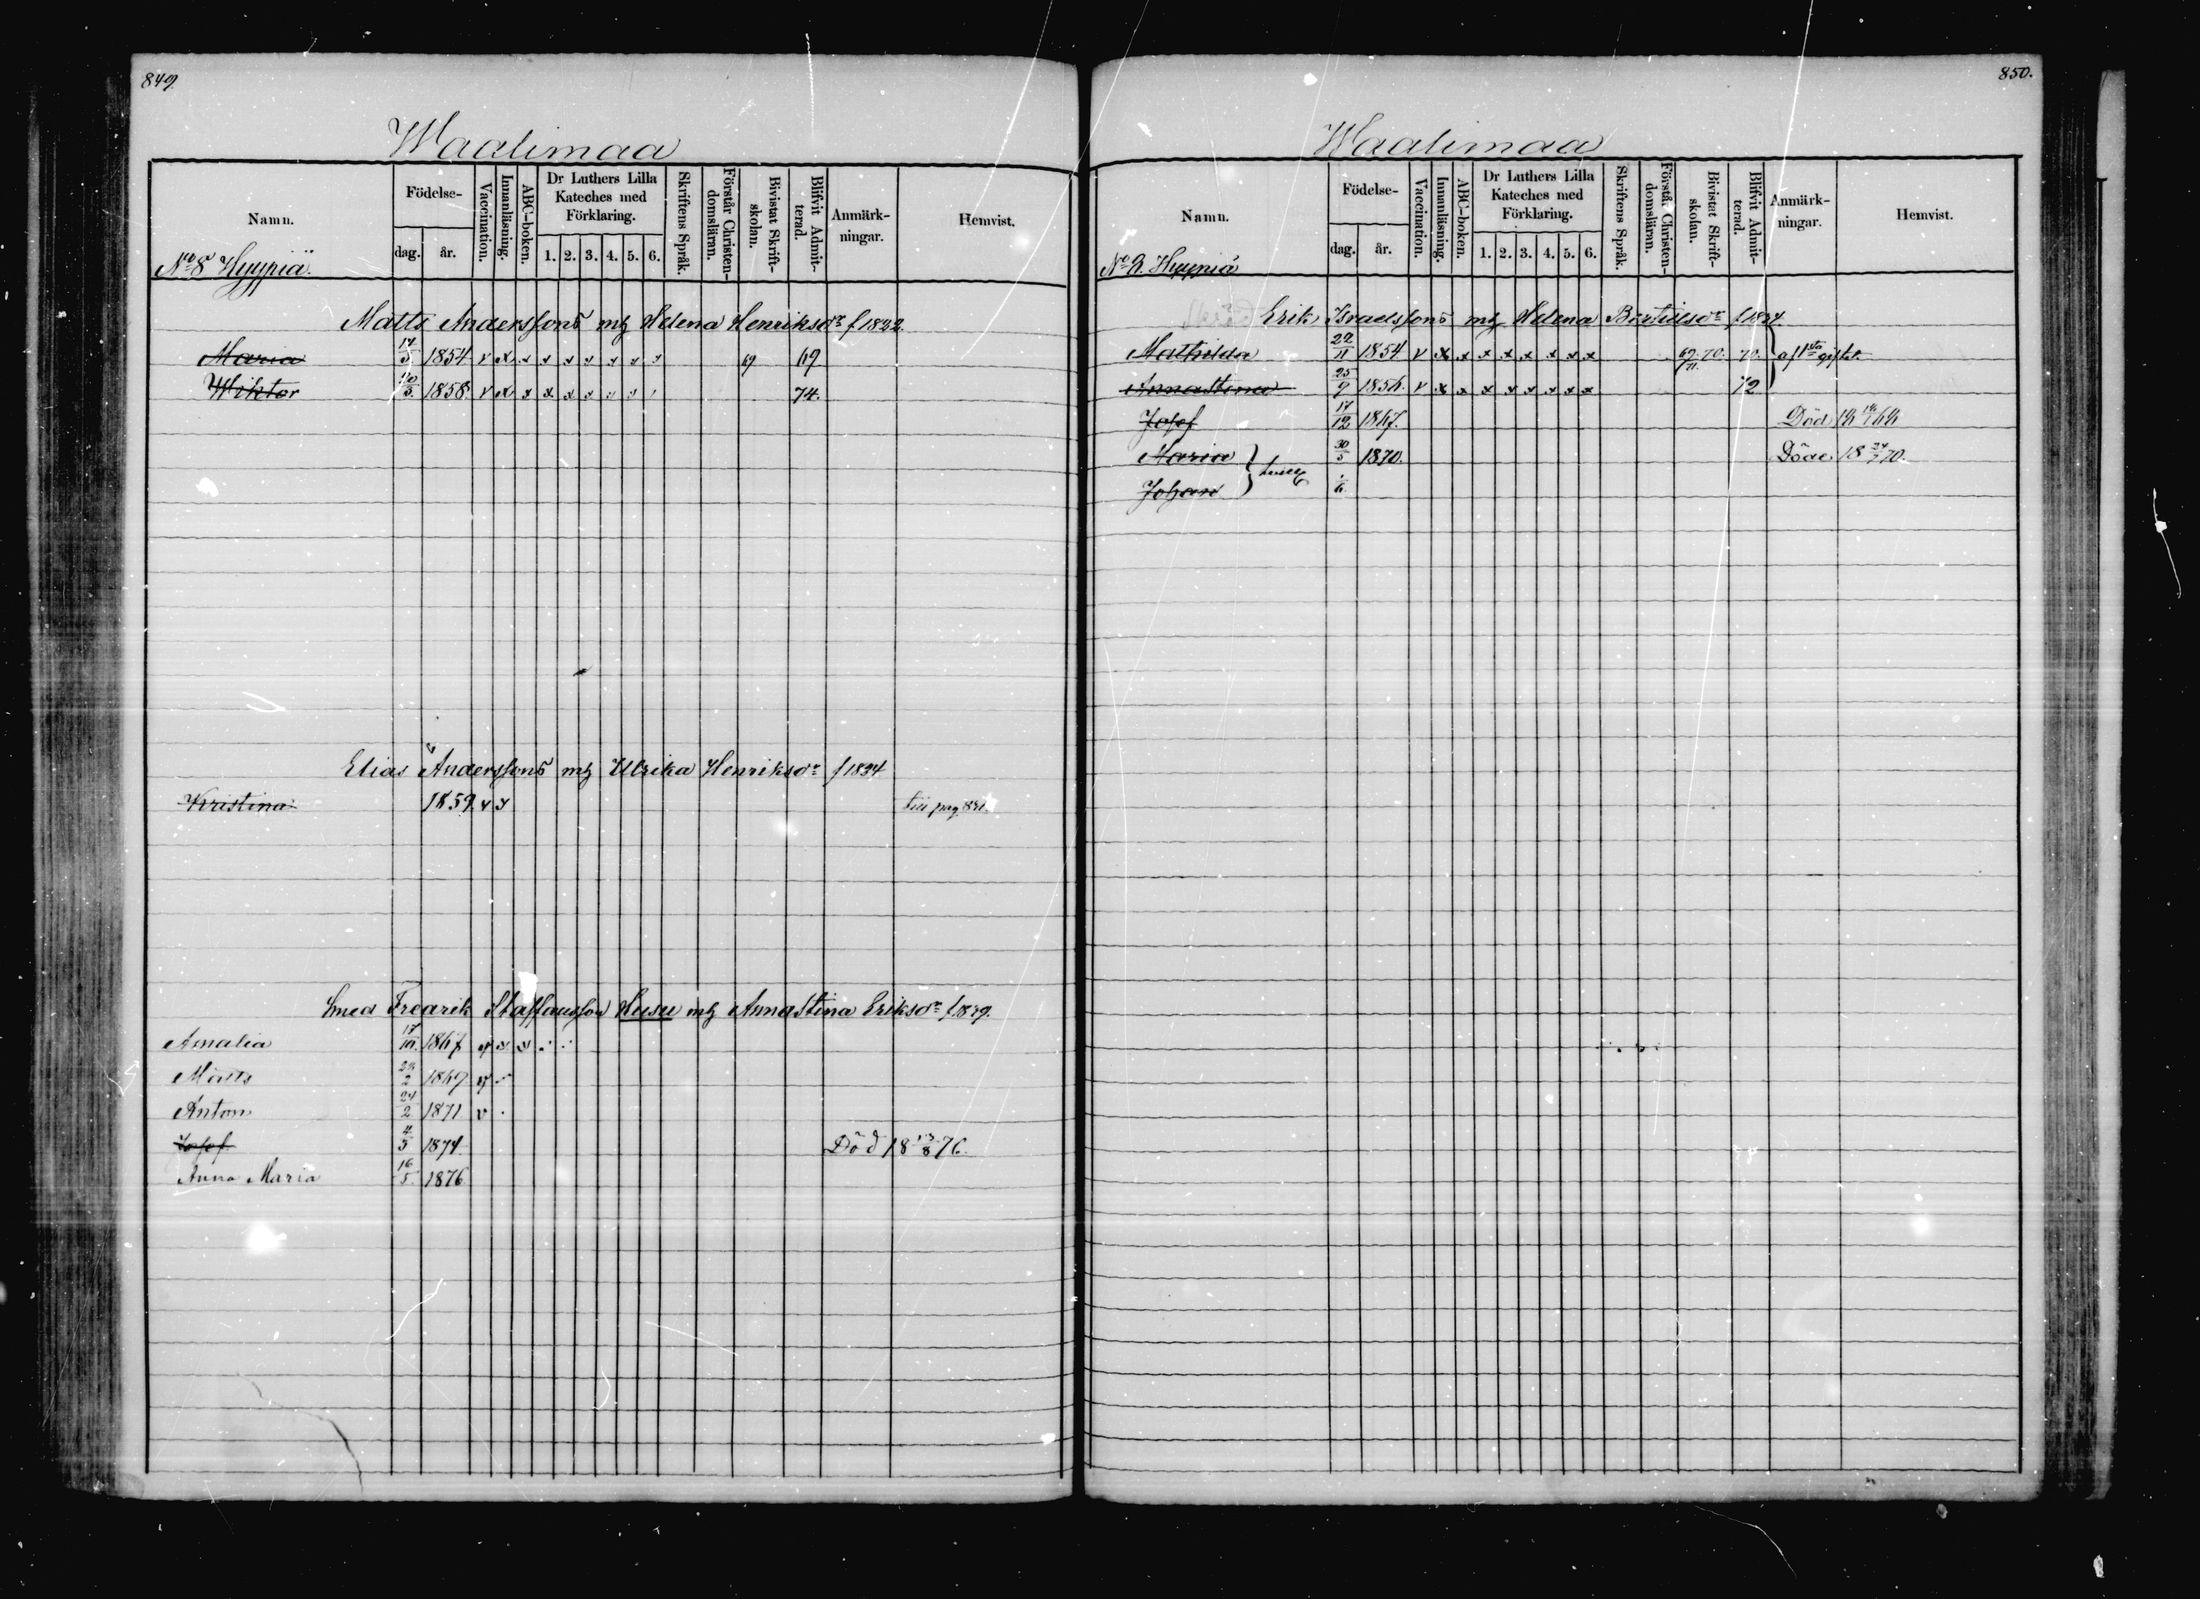 849.
Waalimaa
Namn.
Födelse-
dag.
år.
Vaccination.
Innanläsning.
ABC-boken.
Dr Luthers Lilla
Kateches med
Förklaring.
1. 2. 3. 4. 5. 6.
Skriftens Språk.
Förstår Christen-
domsläran.
Bivistat Skrift-
skolan.
Blifvit Admit-
terad.
Anmärk-
ningar.
Hemvist.
No 8 Hyypiä.
Matts Anderssons mh Helena Henriksdr f 1822.
Maria 17/5 1854 v x x x x x x x x 69 69
Wiktor 1858 v x x x x x x x 74.
Elias Anderssons mh Ulrika Henriksdr f 1834
Kristina 1859. v x till pag 831.
Smed Fredrik Staffansson Husu mh Annastina Eriksdr f. 1849.
Amalia 17/10. 1867
Matts 1869
Anton 24/2 1871 v
Josef 4/5 1874. Död 18 13/8 76.
Anna Maria 16/5. 1876
850.
Waalimaa
Namn.
Födelse-
dag.
år.
Vaccination.
Innanläsning.
ABC-boken.
Dr Luthers Lilla
Kateches med
Förklaring.
1. 2. 3. 4. 5. 6.
Skriftens Språk.
Förstår Christen-
domsläran.
Bivistat Skrift-
skolan.
Blifvit Admit-
terad.
Anmärk-
ningar.
Hemvist.
No 9. Hyypiä
Erik Israelssons mh Helena Bertilsdr f 1834.
Mathilda 22/11 1854 v x x x x x x x x 69. 70. 71. 70. af 1sta giftet.
Annastina 25/9 1856. v x x x x x x x x 72
Josef 17/12 1867. Död
Maria 30/5 1870. Döde 18 24/7 70.
Johan